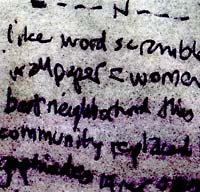 - - - N - - -
like word scramble
wallpaper = women
best neighborhood this
community replaced